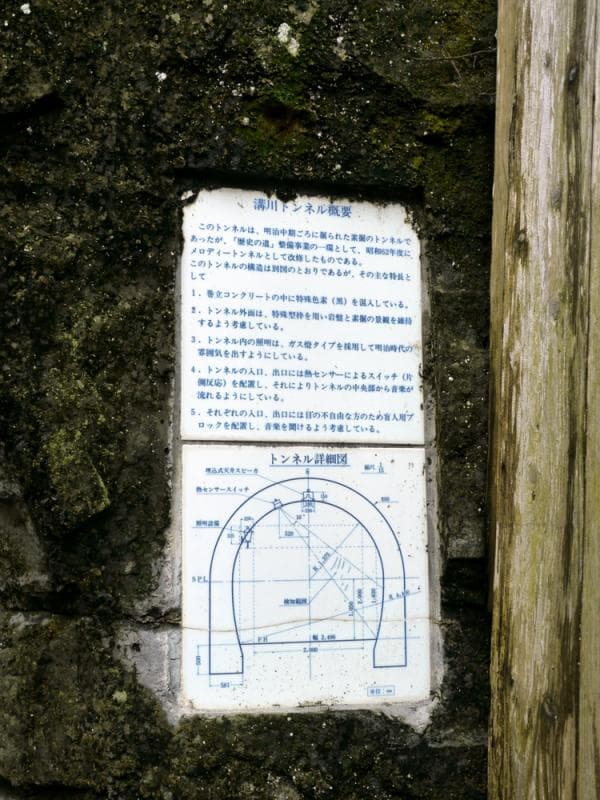 溝川トンネル概要
このトンネルは、明治中期ごろに掘られた素掘のトンネルで
あったが、「歴史の道」整備事業の一環として、昭和62年度に
メロディートンネルとして改修したものである。
このトンネルの構造は別図のとおりであるが、その主な特長と
して
1．巻立コンクリートの中に特殊色素（黒）を混入している。
2．トンネル外面は、特殊型枠を用い岩盤と素掘の景観を維持
するよう考慮している。
3．トンネル内の照明は、ガス燈タイプを採用して明治時代の
雰囲気を出すようにしている。
4．トンネルの入口、出口には熱センサーによるスイッチ（片
側反応）を配置し、それによりトンネルの中央部から音楽が
流れるようにしている。
5．それぞれの入口、出口には目の不自由な方のため盲人用ブ
ロックを配置し、音楽を聞けるよう考慮している。
トンネル詳細図
埋込式天井スピーカ
熱センサースイッチ
照明設備
SPL
検知範囲
FH
幅 2,496
2,000
500
581
単位 mm